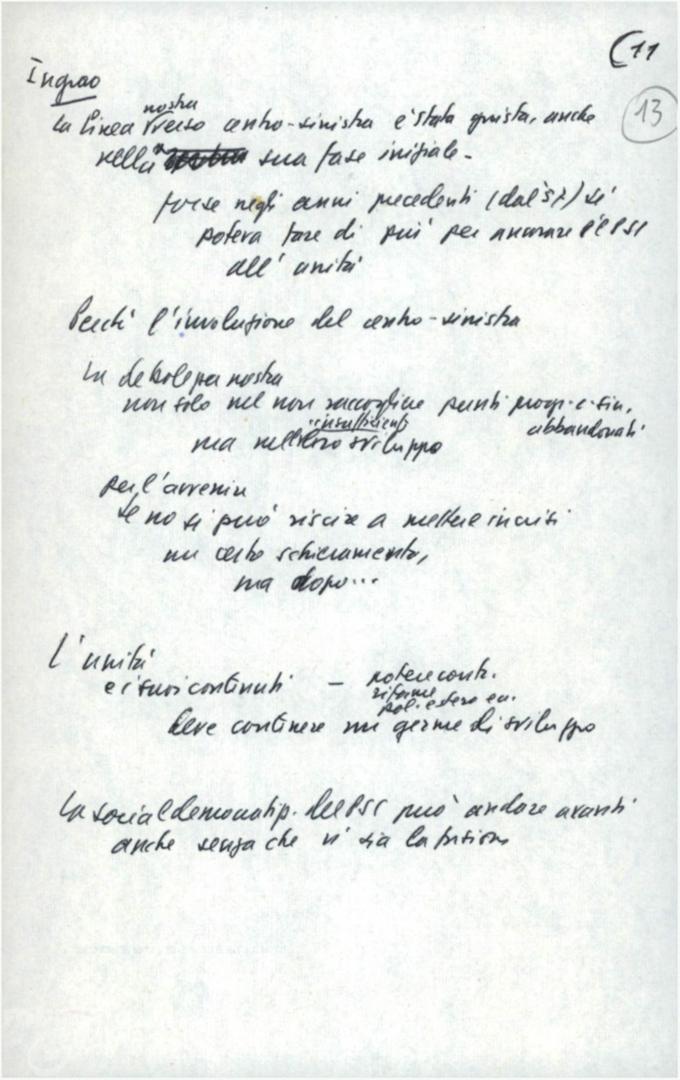 (11
13
Ingrao
nostra
La linea verso centro-sinistra è stata giusta, anche
nella sua fase iniziale.
forse negli anni precedenti (dal '57) si
poteva fare di più per ancorare il PSI
all'unità
Perché l'involuzione del centro-sinistra
La debolezza nostra
non solo nel non raccogliere punti progr. c. sin.
insufficienti abbandonati
ma nell loro sviluppo
per l'avvenire
Se no si può riscire a mettere in crisi
un certo schieramento,
ma dopo...
L'unità
e i suoi contenuti – potere contr.
riforme
pol. estera
deve contenere un germe di sviluppo
La socialdemocratiz. del PSI può andare avanti
anche senza che vi sia la fusione